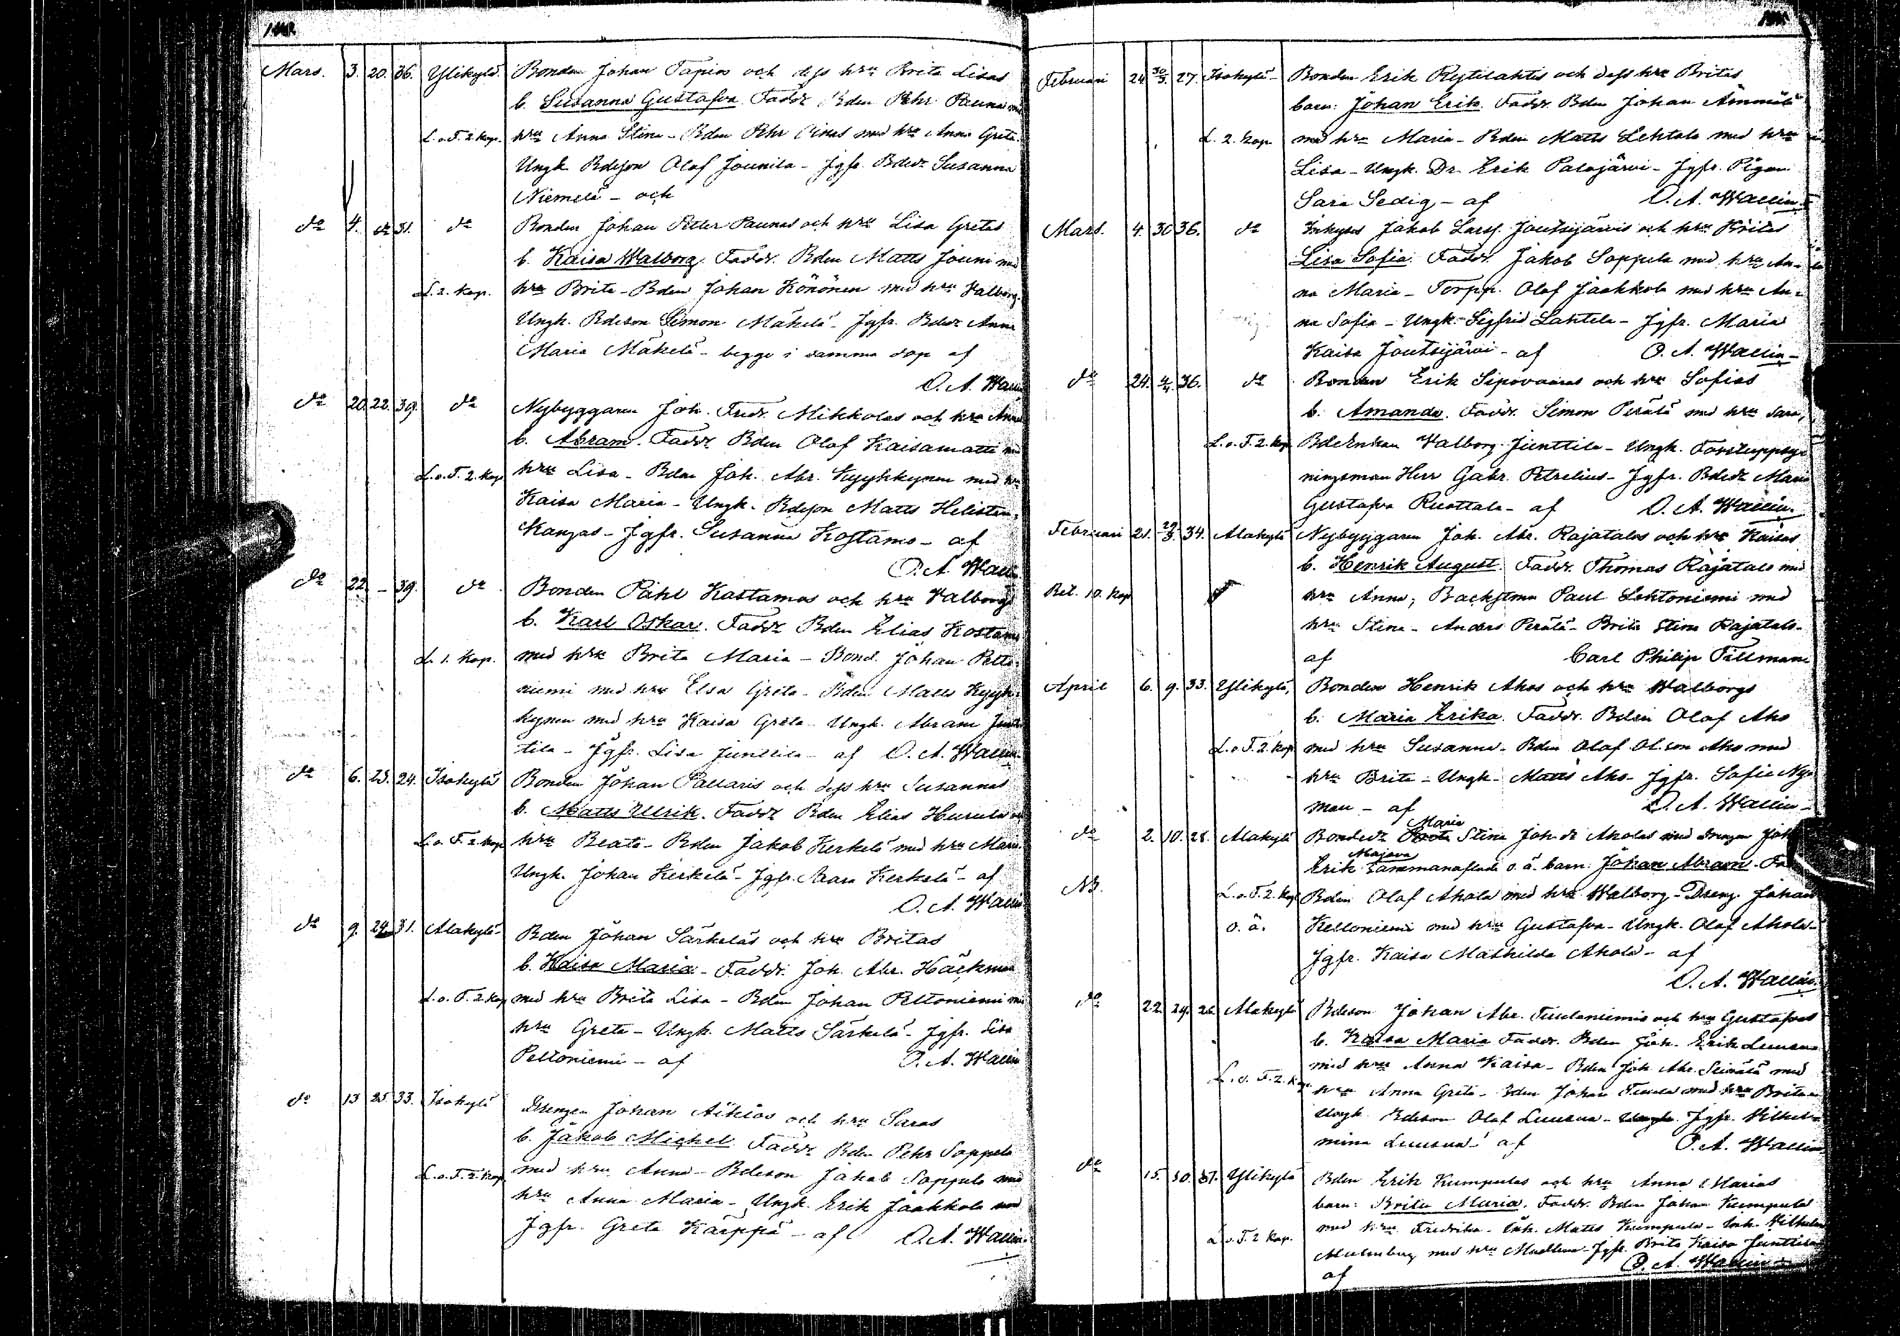 Mars. 3. 20. 36. Ylikylä. Bonden Johan Tapios och dess hru Brita Lisas
b. Susanna Gustafva. Faddr. Bden Pehr Pauna
L. o. F. 2. kop. hru Anna Stina - Bden Pehr med hru Anna Greta.
Ungk. Bdeson Olof Jounila - Jgfr. Bdedr Susanna
Niemelä - och
do 4. do 31. do Bonden Johan Petter Paunas och hru Lisa Gretas
b. Kaisa Walborg. Faddr. Bden Matts Jouni med
L. 2. kop. hru Brita - Bden Johan Könönen med hru Valborg.
Ungk. Bdeson Simon Mäkelä - Jgfr. Bdedr Anna
Maria Mäkelä - begge i samma dop af
O. A. Wallin
do 20. 22. 39. do Nybyggaren Joh. Fredr. Mikkolas och hru Annas
b. Abram. Faddr. Bden Olof Kaisamatti m
L. o. F. 2. kop hru Lisa - Bden Joh. Abr. Kyyhkynen med hru
Kaisa Maria - Ungk. Bdeson Matts Heliste
Kangas - Jgfr. Susanna Kostamo - af
O. A. Wallin
do 22. - 39. do Bonden Påhl Kostamos och hru Valborgs
b. Karl Oskar. Faddr. Bden Elias Kostamo
L. 1. kop. med hru Brita Maria - Bond. Johan Pelto-
niemi med hru Elsa Greta - Bden Matts Kyyh-
kynen med hru Kaisa Greta - Ungk. Abram Junt-
tila - Jgfr. Lisa Junttila - af O. A. Wallin
do 6. 23. 24. Isokylä Bonden Johan Pallaris och dess hru Susannas
b. Matts Ulrik. Faddr. Bden Elias Hurula m
L. o. F. 2. kop hru Beata - Bden Jakob Kerkelä med hru Maria.
Ungk. Johan Kerkelä - Jgfr. Sara Kerkelä - af
O. A. Wallin
do 9. 24. 31. Alakylä - Bden Johan Särkeläs och hru Britas
b. Kaisa Maria - Faddr. Joh. Abr. Häckman
L. o. F. 2. kop med hru Brita Lisa - Bden Johan Peltoniemi m
hru Greta - Ungk. Matts Särkelä - Jgfr. Lisa
Peltoniemi - af O. A. Wallin
do 13 25 33. Isokylä Drengen Johan Aikios och hru Saras
b. Jakob Michel. Faddr. Bden Pehr Soppela
L. o. F. 2. kop med hru Anna - Bdeson Jakob Soppela med
hru Anna Maria - Ungk. Erik Jaakkola med
Jgfr. Greta Karppa - af O. A. Wallin.
Februari 24 30/3. 27. Isokylä - Bonden Erik Pyttilahtis och dess hru Britas
barn: Johan Erik. Faddr. Bden Johan Ämmälä
L. 2. kop. med hru Maria - Bden Matts Lehtola med hru
Lisa - Ungk. Dr. Erik Palojärvi - Jgfr. Pigan
Sara Sedig - af O. A. Wallin
Mars. 4. 30 36. do Inhyses Jakob Larss. Joutsijärvis och hru Britas
Lisa Sofia. Faddr. Jakob Soppela med hru An-
na Maria - Torpp. Olof Jaakkola med hru An-
na Sofia - Ungk. Sigfrid Lahtela - Jgfr. Maria
Kaisa Joutsijärvi - af O. A. Wallin -
do 24. 36. do Bonden Erik Sipovaaras och hru Sofias
b. Amanda. Faddr. Simon Perälä med hru Sara,
L. o. F. 2. kop. BdeEnkan Valborg Junttila - Ungk. Forstuppsy-
ningsman Herr Gabr. Petrelius - Jgfr. Bdedr Maria
Gustafva Ruottala - af O. A. Wallin.
Februari 21. 29/3. 34. Alakylä Nybyggaren Joh. Abr. Rajatalos och hru Kaisas
b. Henrik August. Faddr. Thomas Rajatalo med
Bet. 10. kop hru Anna, Backstma Paul Lehtoniemi med
hru Stina - Anders Perälä - Brita Stina Rajatalo -
af Carl Philip Tillman
April 6. 9. 33. Ylikylä, Bonden Henrik Ahos och hru Walborgs
b. Maria Erika. Faddr. Bden Olof Aho
L. o. F. 2. kop med hru Susanna - Bden Olof Ol.son Aho med
hru Brita - Ungk. Matts Aho - Jgfr. Sofia Ny-
man - af O. A. Wallin -
do 2. 10. 28. Alakylä Bondedr Maria Stina Joh. dr Aholas med drengen Joh
Erik Majava Sammanaflade o. ä. barn: Johan Abram - Fa
NB. L. o. F. 2. kop Bden Olof Ahola med hru Walborg - Dreng. Johan
o. ä. Keltoniemi med hru Gustafva - Ungk. Olof Ahola -
Jgfr. Kaisa Mathilda Ahola - af
O. A. Wallin.
do 22. 24. 26. Alakylä Bdeson Johan Abr. Tiuraniemis och hru Gustafvas
b. Kaisa Maria. Faddr. Bden Joh. Erik Luusua
L. o. F. 2. kop. med hru Anna Kaisa - Bden Joh. Abr. Perälä med
hru Anna Greta - Bden Johan med hru Brita
Ungk. Bdeson Olof Luusua - Jgfr. Vilhel-
mina Luusua - af O. A. Wallin
do 15. 30. 37. Ylikylä Bden Erik Kumpulas och hru Anna Marias
barn: Brita Maria. Faddr. Bden Johan Kumpula
L. o. F. 2 kop. med hru Fredrika - Inh. Matts Kumpula - Inh. Vilhelm
med hru - Jgfr. Brita Kaisa Junttila
af O. A. Wallin -